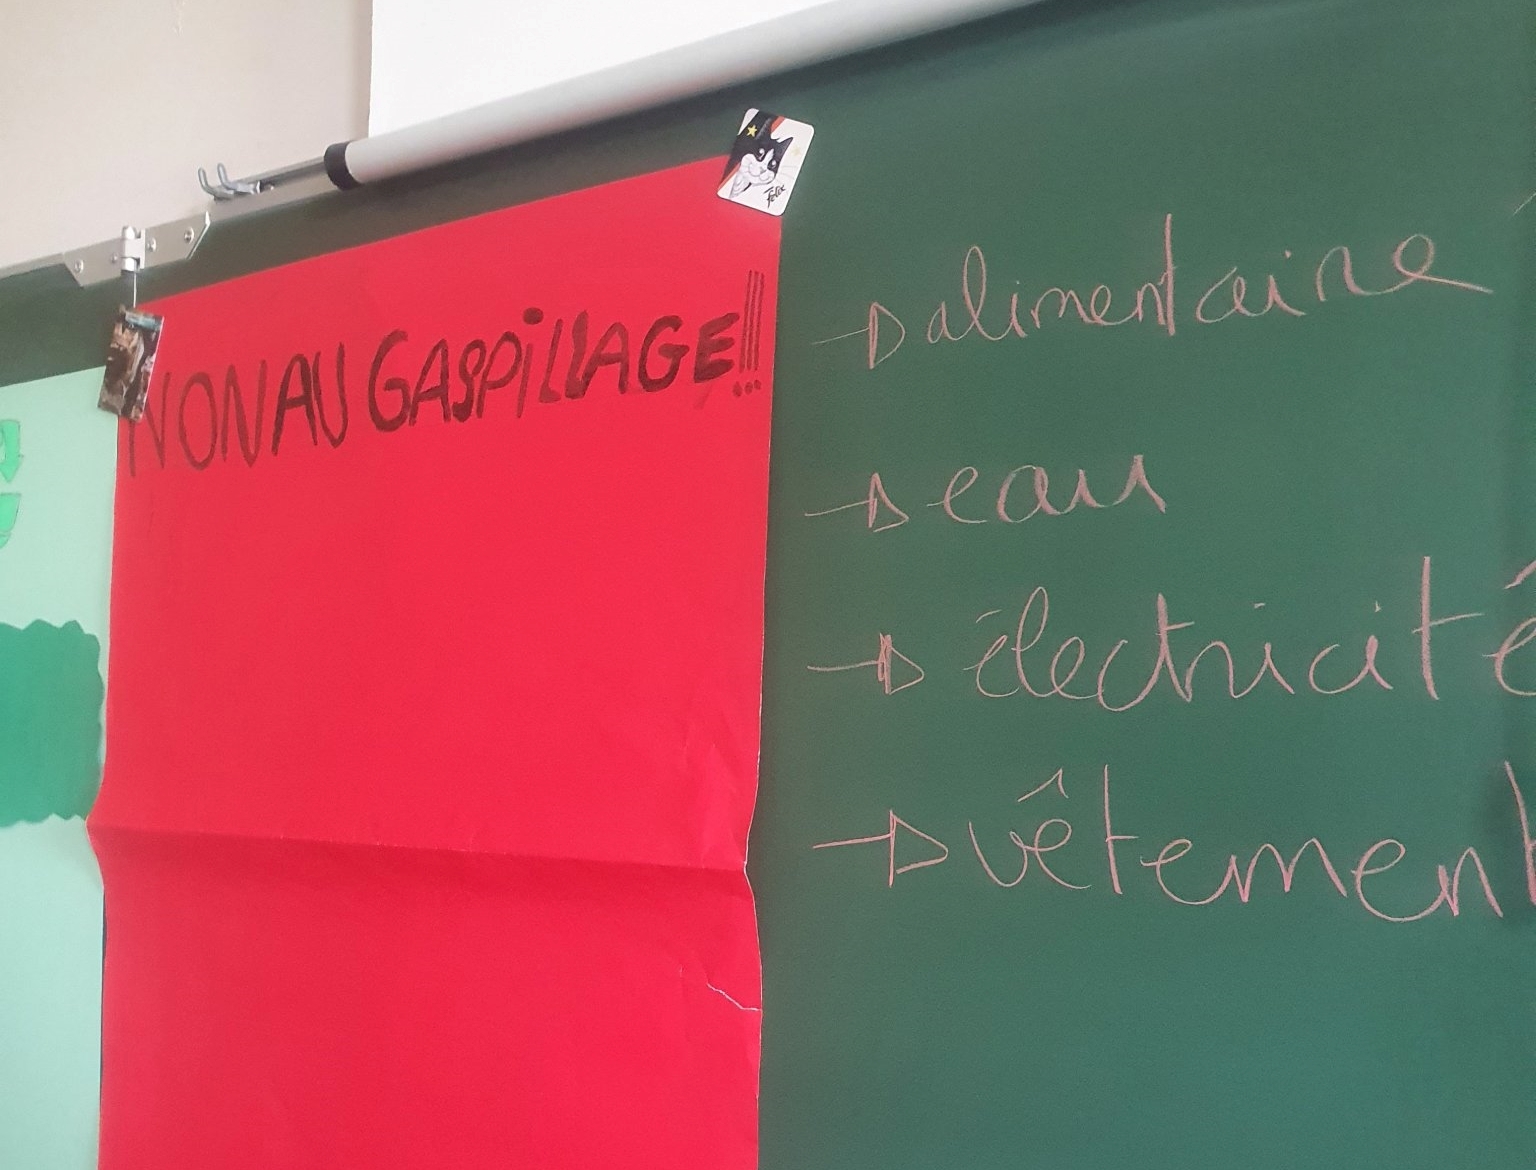 NON AU GASPiLLAGE!!!
Félix
→ alimentaire
→ eau
→ électricité
→ vêtement